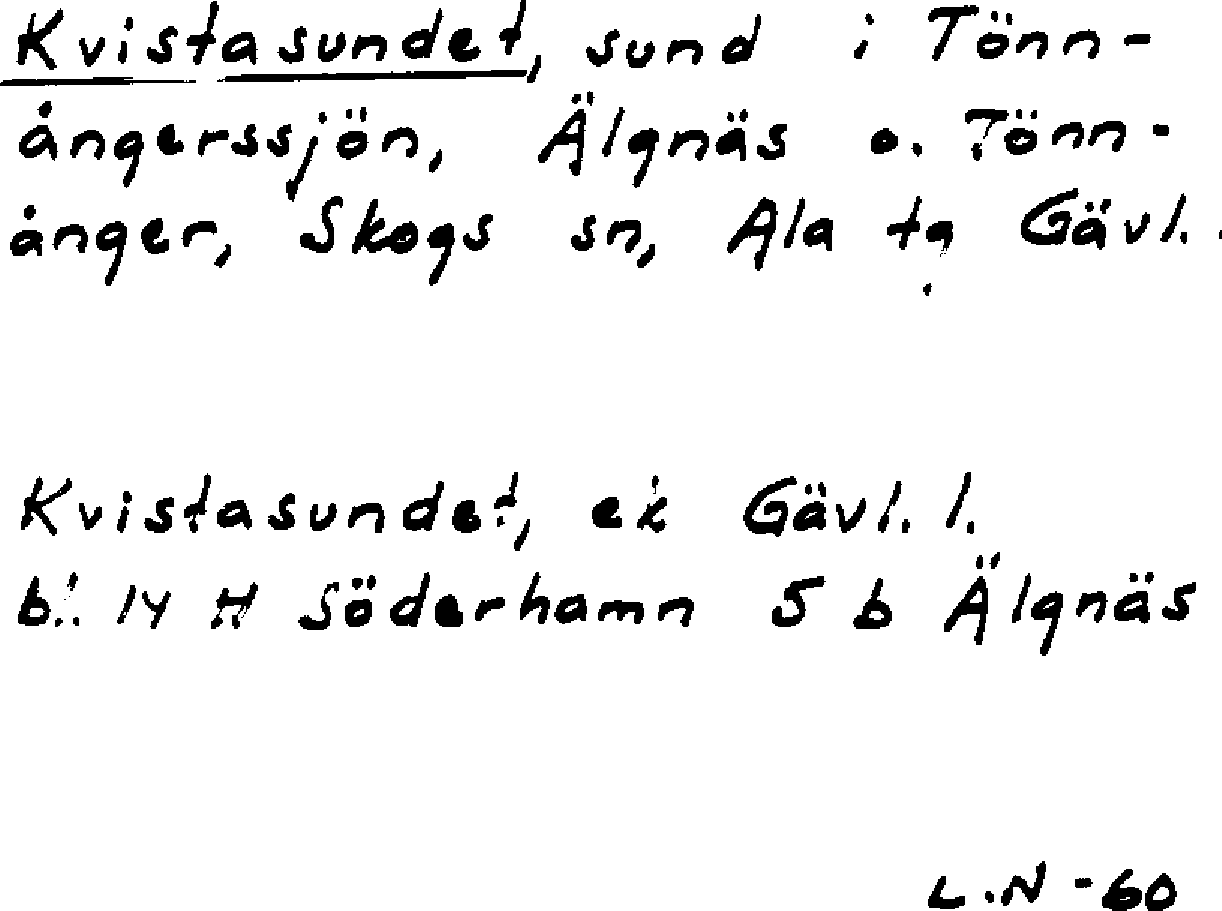 Kvistasundet, sund i Tönn-
ångerssjön, Älgnäs o. Tönn-
ånger, Skogs sn, Ala tg Gävl.
Kvistasundet, ek Gävl. l.
bl. 14 H Söderhamn 5 b Älgnäs
L.N -60